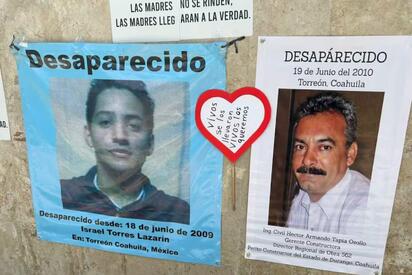 LAS MADRES NO SE RINDEN,
LAS MADRES LLEGARAN A LA VERDAD.
Desaparecido
Desaparecido desde: 18 de junio de 2009
Israel Torres Lazarin
En: Torreón Coahuila, México
Vivos
se los
llevaron
Vivos los
queremos
DESAPÁRECIDO
19 de Junio del 2010
Torreón, Coahuila
Ing. Civil Hector Armando Tapia Osollo
Gerente Constructora
Director Regional de Obra 562
Perito Constructora del Estado de Durango, Coahuila
DAD.